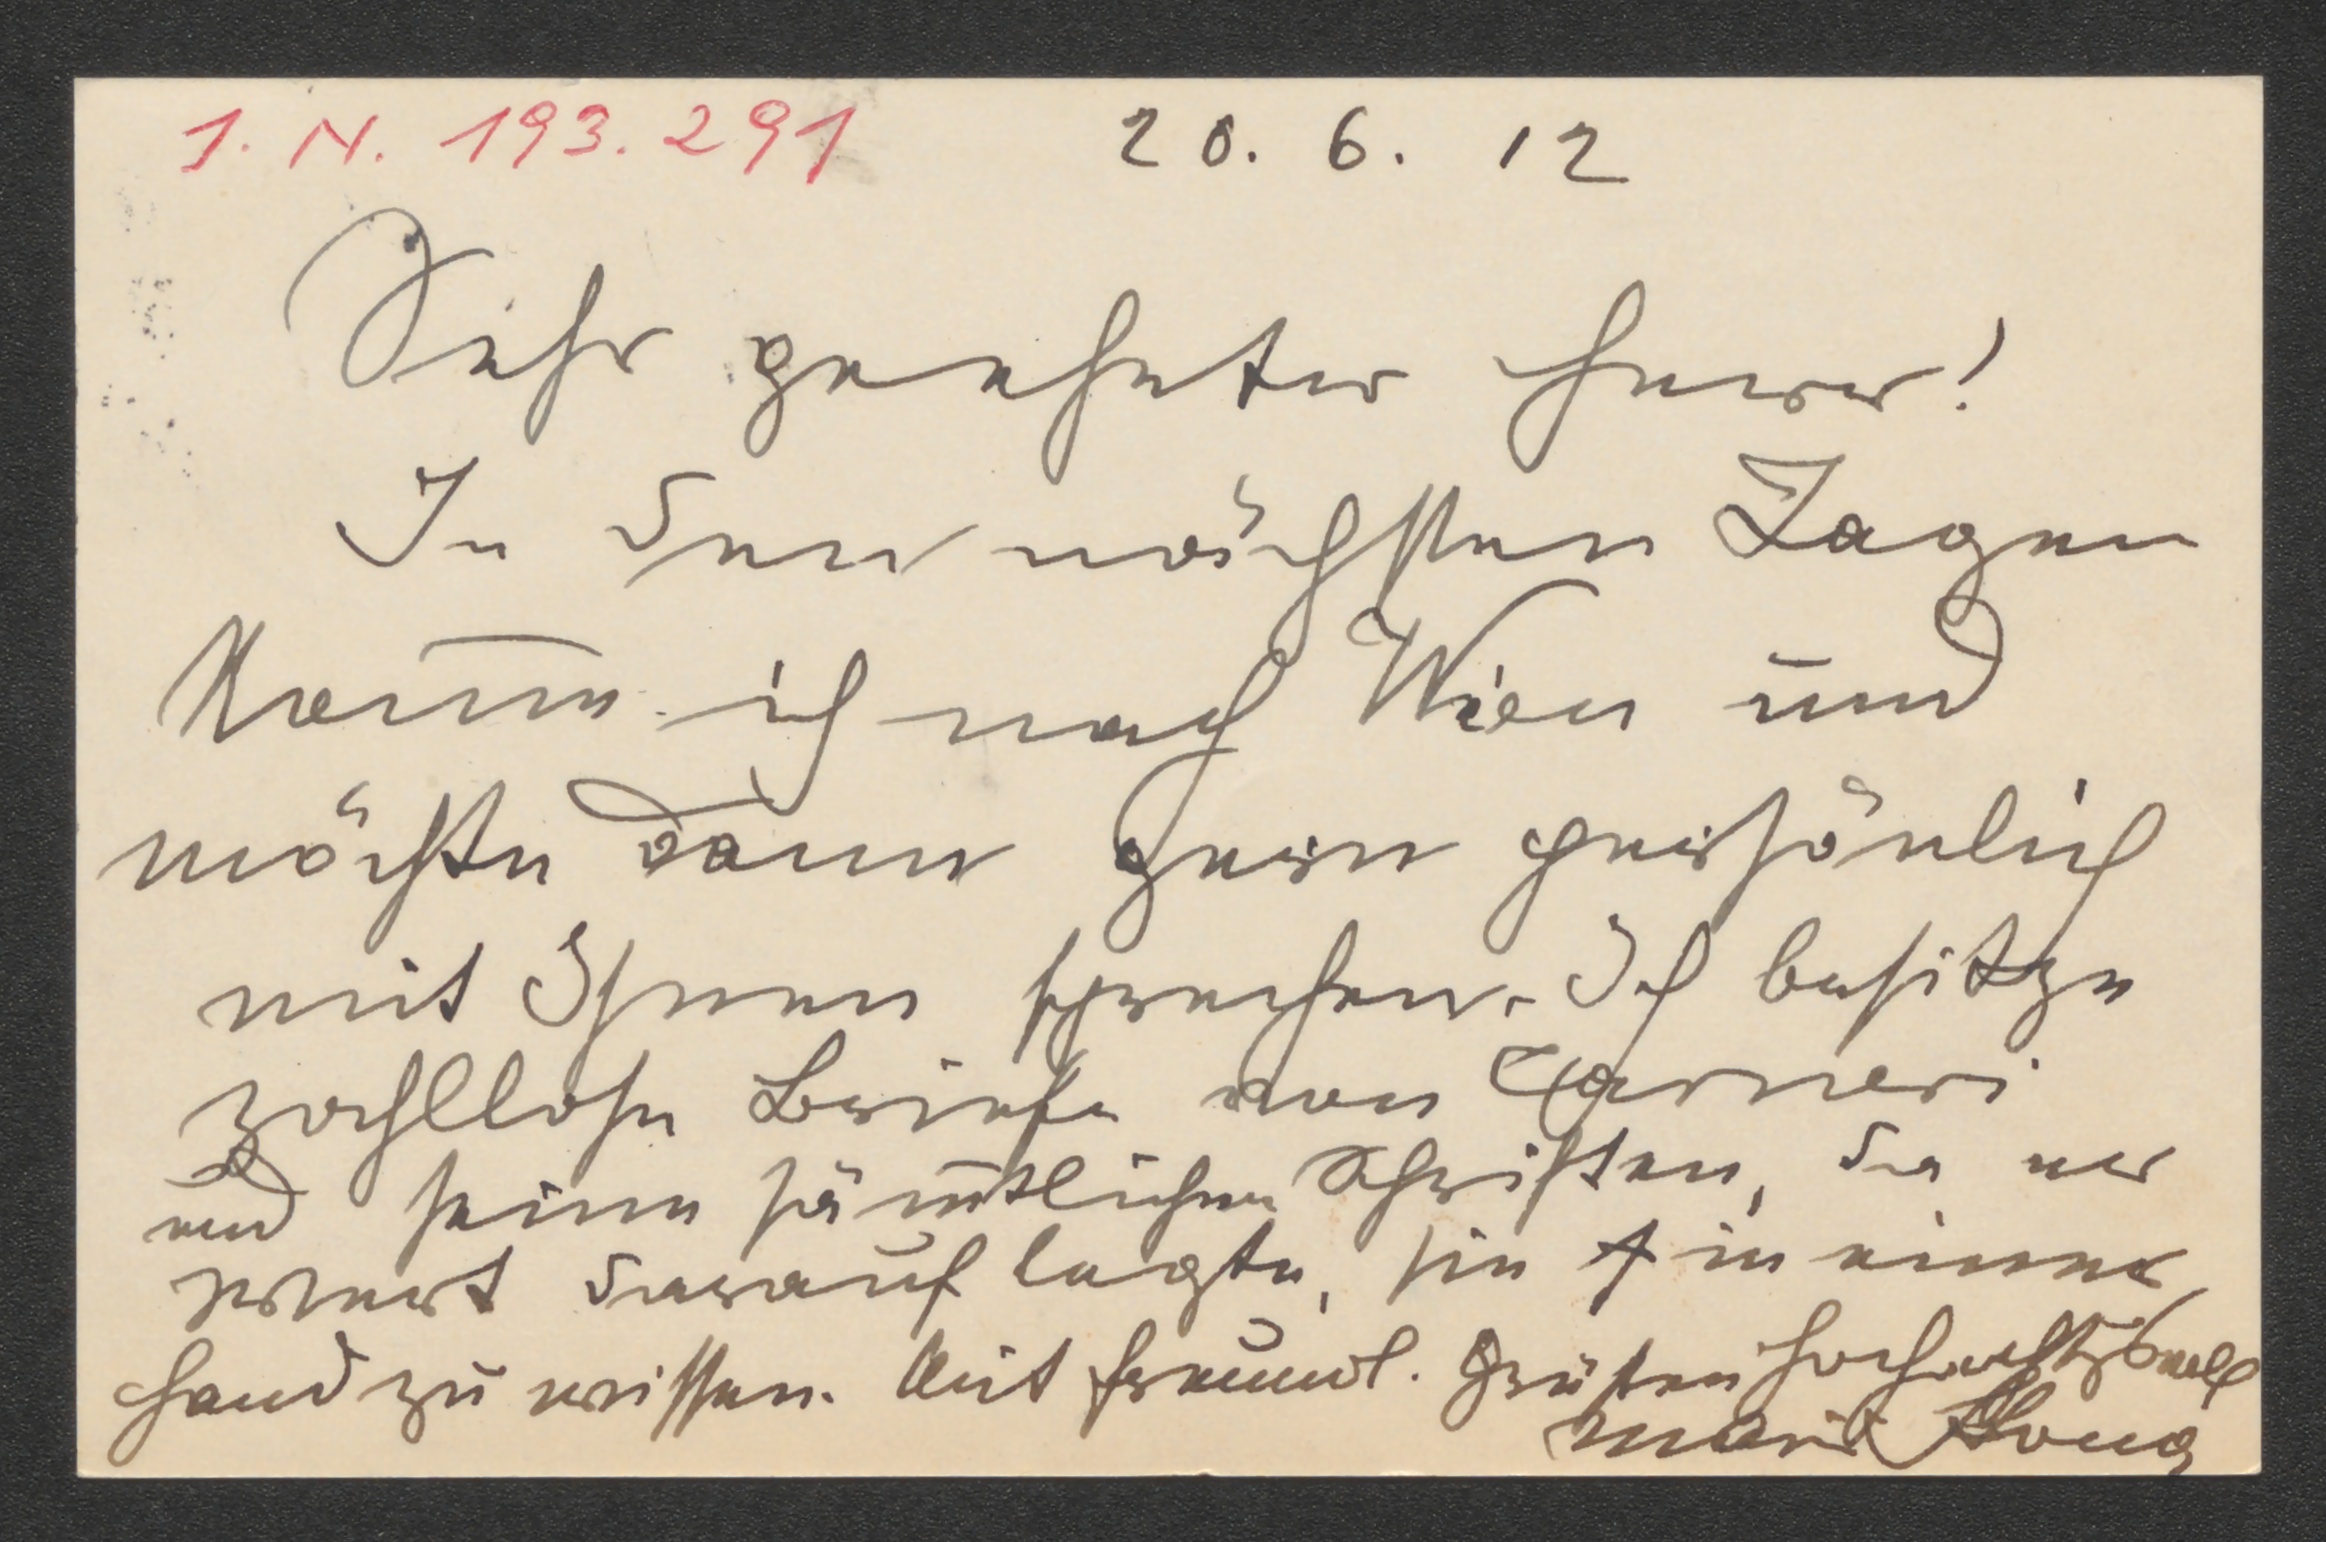 I. N. 193.291 20. 6. 12
Sehr geehrter Herr!
In den nächsten Tagen
kom̅e ich nach Wien und
möchte dann gern persönlich
mit Ihnen sprechen. Ich besitze
zahllose Briefe von Carneri
und seine säm̅tlichen Schriften, da er
Wert darauf legte, sie in einer
Hand zu wissen. Mit freundl. Grüßen hochachtungsvoll